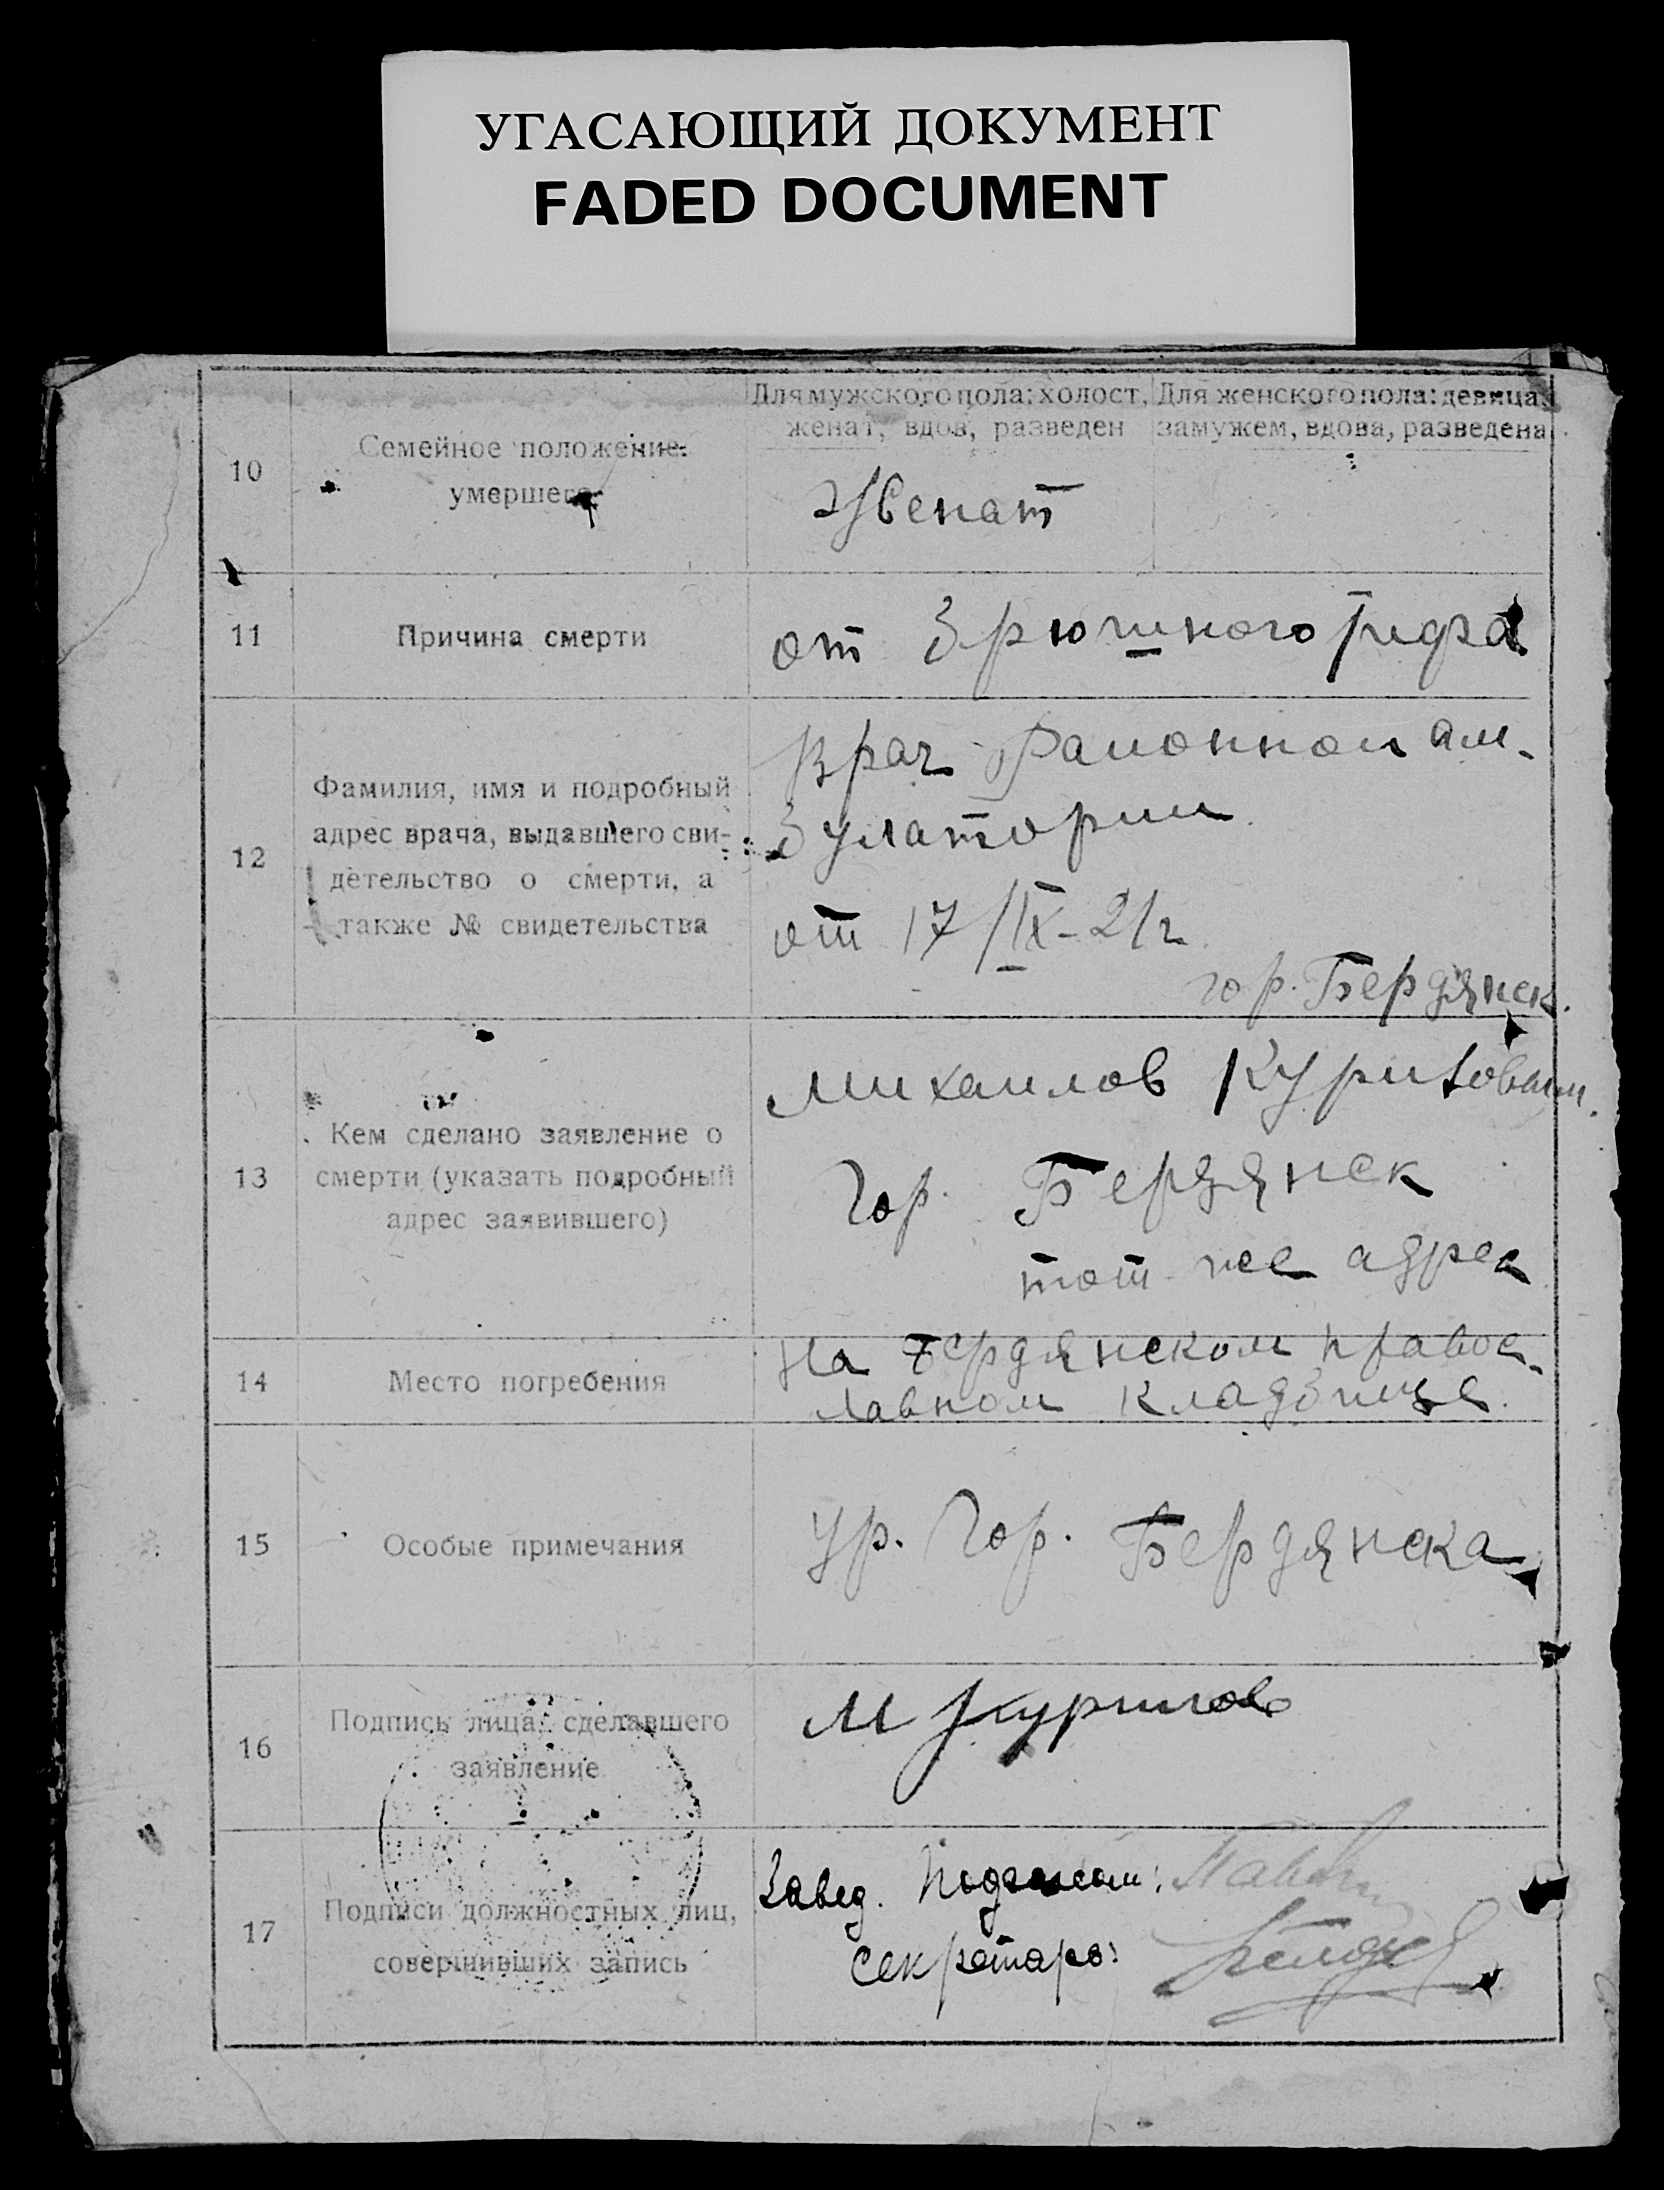 УГАСАЮЩИЙ ДОКУМЕНТ
FADED DOCUMENT
10
Семейное положение
умершего
Для мужского пола: холост,
женат, вдов, разведен
Для женского пола: девица,
замужем, вдова, разведена
Женат
11
Причина смерти
от брюшного тифа
12
Фамилия, имя и подробный
адрес врача, выдавшего сви-
детельство о смерти, а
также № свидетельства
Врач районной ам-
булатории
от 17/IX-21г
гор. Бердянск.
13
Кем сделано заявление о
смерти (указать подробный
адрес заявившего)
Михаилов
Гор. Бердянск
тот же адрес
14
Место погребения
на Бердянском правос-
лавном кладбище.
15
Особые примечания
ур. Гор. Бердянска
16
Подпись лица, сделавшего
заявление
М
17
Подписи должностных лиц,
совершивших запись
Завед.
Секретарь: